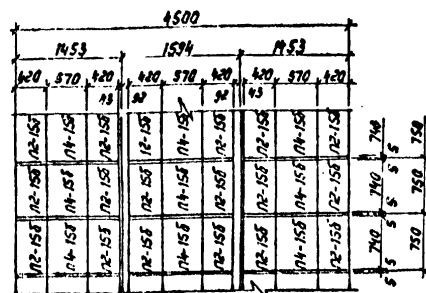 4500
1453 1594 1453
420 570 420 420 570 420 420 570 420
43 92 92 43
П2-15б П4-15б П2-15б П2-15б П4-15б П2-15б П2-15б П4-15б П2-15б
740 5 750
П2-15б П4-15б П2-15б П2-15б П4-15б П2-15б П2-15б П4-15б П2-15б
740 5 750
П2-15б П4-15б П2-15б П2-15б П4-15б П2-15б П2-15б П4-15б П2-15б
740 5 750
5